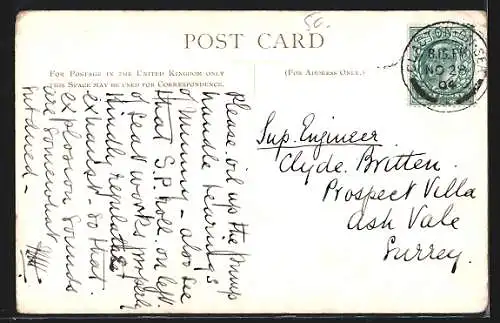 50.
POST CARD
FOR POSTAGE IN THE UNITED KINGDOM ONLY
THIS SPACE MAY BE USED FOR CORRESPONDENCE.
(FOR ADDRESS ONLY.)
CLACTON-ON-SEA
8.15 PM
NO 28
04
Please oil up the pump
handle bearings
of mummy - also see
that S.P. holl. on left
of seat works properly
Kindly regulate
exhaust - so that
explosion sounds
are somewhat
subdued -
Sup. Engineer
Clyde. Britten.
Prospect Villa
Ash Vale
Surrey.